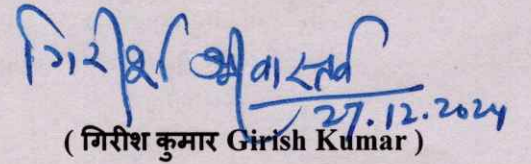 गिरीश श्रीवास्तव
27.12.2024
( गिरीश कुमार Girish Kumar )